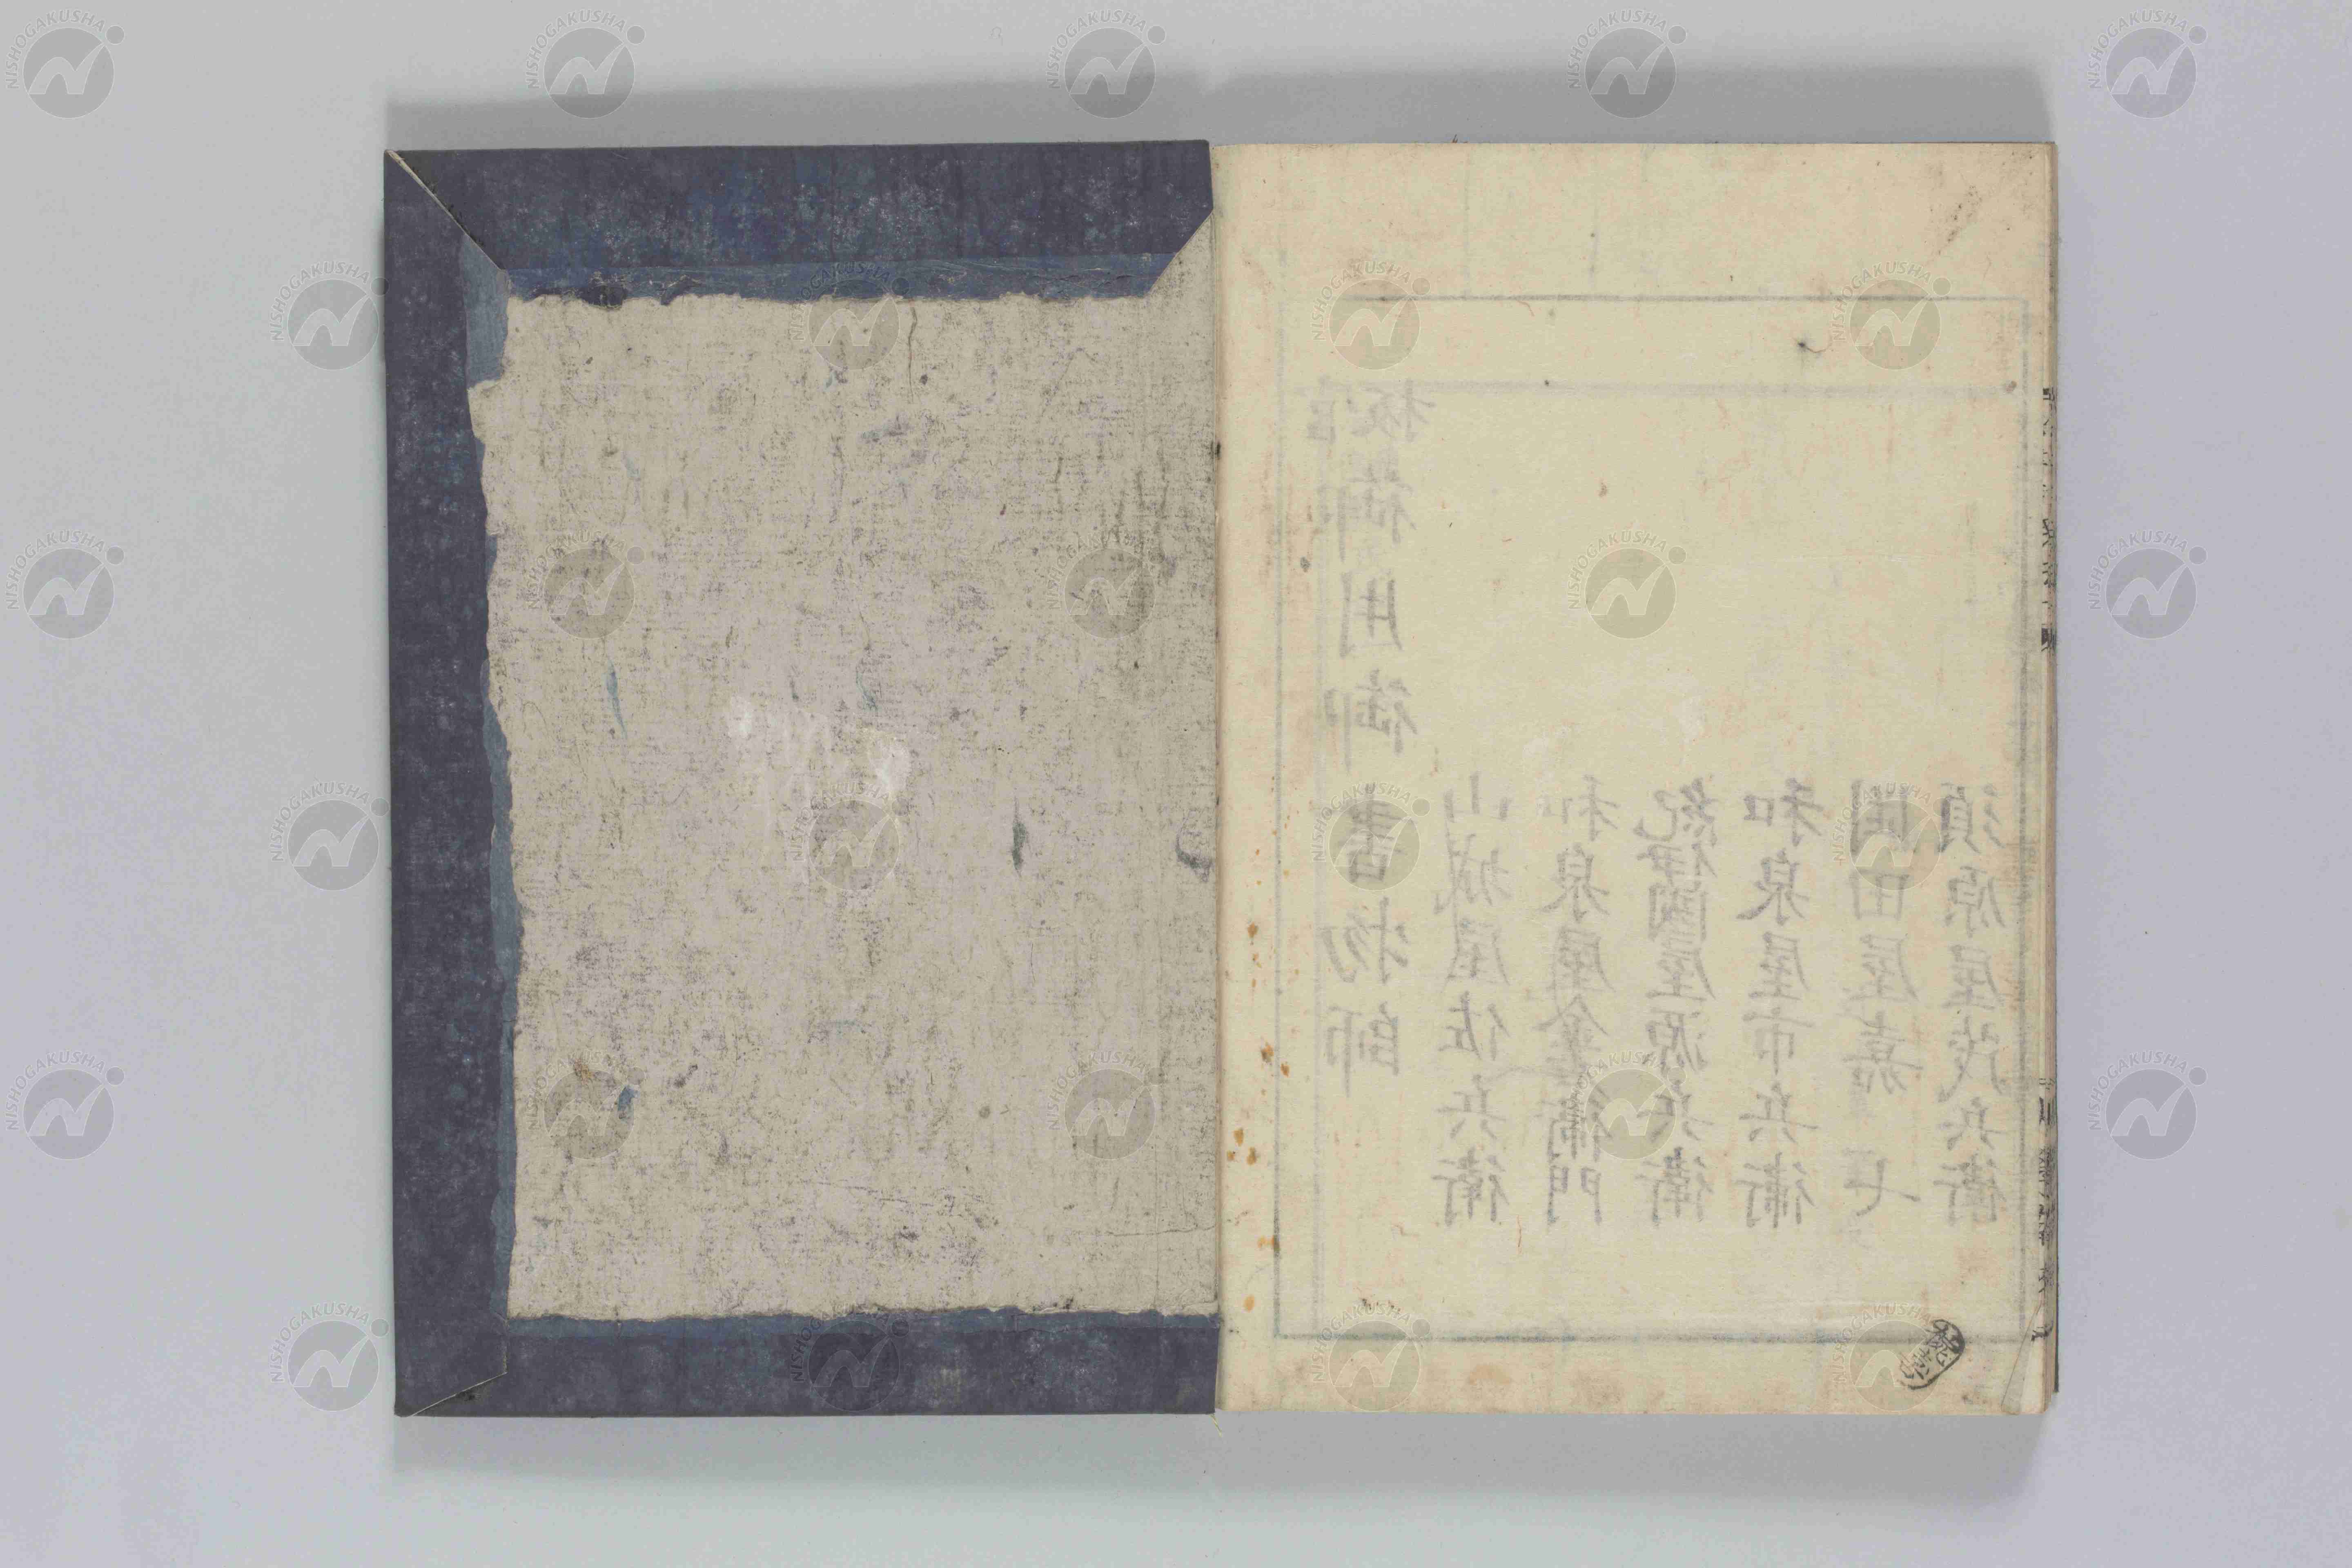 御用御書物師
山城屋佐兵衛
和泉屋金右衛門
紀伊國屋源兵衛
和泉屋市兵衛
岡田屋嘉七
須原屋茂兵衛
NISHOGAKUSHA